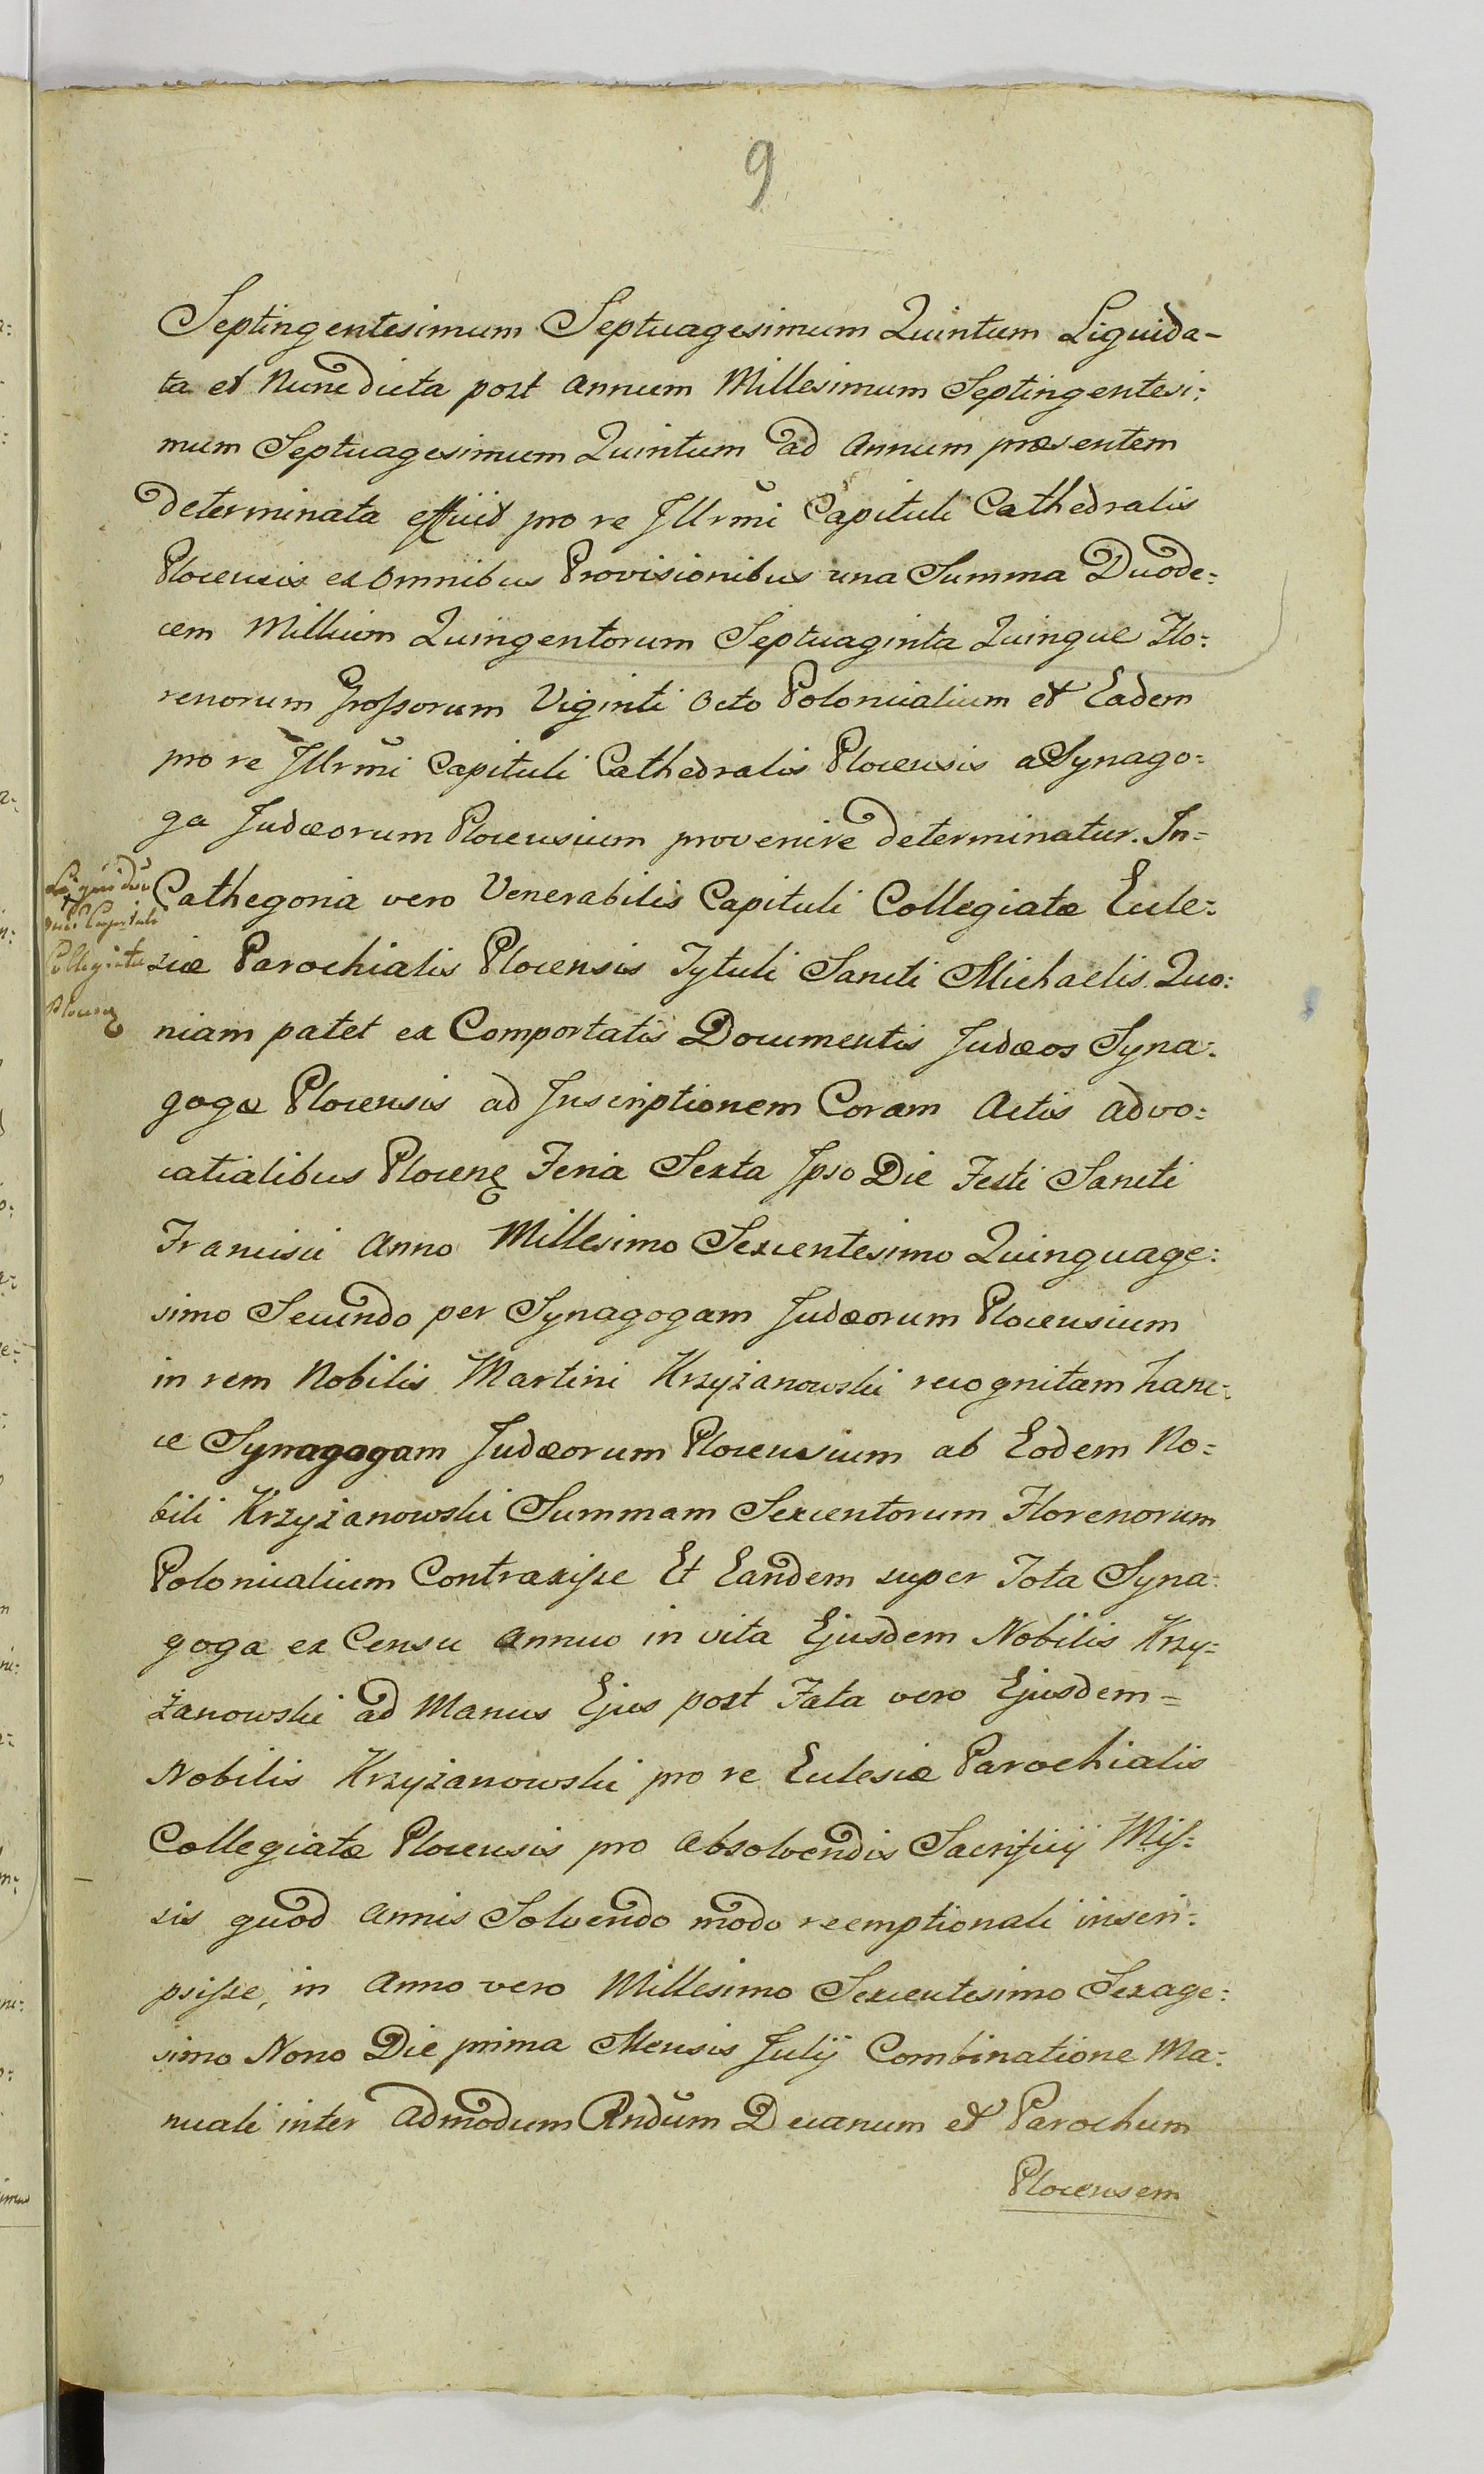 9
Septingentesimum Septuagesimum Quintum Liquida-
ta et Nunc dicta post annum Millesimum Septingentesi:
mum Septuagesimum Quintum ad annum præsentem
determinata efficit pro re Illrmi Capituli Cathedralis
Plocensis ex omnibus Provisionibus una Summa Duode:
cem Millium Quingentorum Septuaginta Quinque Flo:
renorum Grossorum Viginti Octo Polonicalium et Eadem
pro re Illrmi Capituli Cathedralis Plocensis a Synago:
ga Judæorum Plocensium provenire determinatur. In=
Cathegoria vero Venerabilis Capituli Collegiatæ Eccle:
siæ Parochialis Plocensis Tytuli Sancti Michaelis. Quo:
niam patet ex Comportatis Documentis Judæos Syna:
gogæ Plocensis ad Inscriptionem Coram Actis advo:
catialibus Plocen Feria Sexta Ipso Die Festi Sancti
Francisci Anno Millesimo Sexcentesimo Quinquage:
simo Secundo per Synagogam Judæorum Plocensium
in rem Nobilis Martini Krzyżanowski recognitam hanc:
ce Synagogam Judæorum Plocensium ab Eodem No:
bili Krzyżanowski Summam Sexcentorum Florenorum
Polonicalium Contraxisse Et Eandem super Tota Syna:
goga ex Censu annuo in vita Ejusdem Nobilis Krzy:
żanowski ad Manus Ejus post Fata vero Ejusdem=
Nobilis Krzyżanowski pro re Eclesiæ Parochialis
Collegiatæ Plocensis pro absolvendis Sacrificij Mis:
sis quod annis Solvendo modo reemptionali inscri:
psisse, in Anno vero Millesimo Sexcentesimo Sexage:
simo Nono Die prima Mensis Julij Combinatione Ma:
nuali inter admodum Rndum Decanum et Parochum
Plocensem
Capituli
Collegiatæ
Plocen